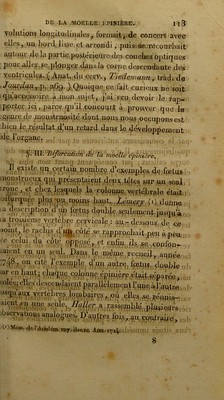 DE LA MOELLE ÉPINIÈRE. 113
volutions longitudinales, formait, de concert avec
elles, un bord lisse et arrondi, puis se recourbait
autour de la partie postérieure des couches optiques
pour aller se plonger dans la corne descendante des
ventricules. (Anat. du cerv., Tiedemann, trad. de
Jourdan, p. 269.) Quoique ce fait curieux ne soit
qu'accessoire à mon sujet, j'ai cru devoir le rap-
porter ici, parce qu'il concourt à prouver que le
genre de monstruosité dont nous nous occupons est
bien le résultat d'un retard dans le développement
de l'organe.
§. III. Bifurcation de la moelle épinière.
Il existe un certain nombre d'exemples de fœtus
monstrueux qui présentaient deux têtes sur un seul
tronc, et chez lesquels la colonne vertébrale était
bifurquée plus ou moins haut. Lemery (1) donne
la description d'un fœtus double seulement jusqu'à
la troisième vertèbre cervicale : au-dessous de ce
point, le rachis de côté se rapprochait peu à peu
de celui du côté opposé, et enfin ils se confon-
daient en un seul. Dans le même recueil, année
1748, on cite l'exemple d'un autre fœtus double
par en haut; chaque colonne épinière était séparée,
isolée; elles descendaient parallèlement l'une à l'autre
jusqu'aux vertèbres lombaires, où elles se réunis-
saient en une seule. Haller a rassemblé plusieurs
observations analogues. D'autres fois, au contraire,
(1) Mém. de l'Académ. roy. des sc. Ann. 1724.
8